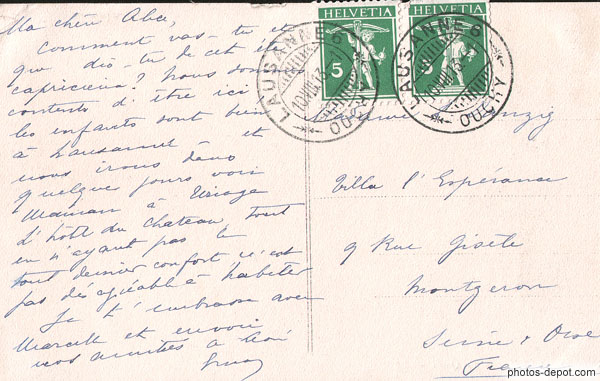 Ma chère Alice,
Comment vas-tu et
que dis-tu de cet été
capricieux? Nous sommes
contents d'être ici
les enfants sont bien
à Lausanne et
nous irons dans
quelques jours voir
Maman à
l'hôtel du chateau tout
en n'ayant pas le
tout dernier confort ce n'est
pas désagréable à habiter
Je t'embrasse avec
Marcelle et envoie
nos amitiés à
HELVETIA
5
HELVETIA
5
LAUSANNE 6
10.VIII.13
OUCHY
LAUSANNE 6
10.VIII.13
OUCHY
Villa l'Espérance
9 Rue Gisèle
Montgeron
Seine & Oise
France
photos-depot.com